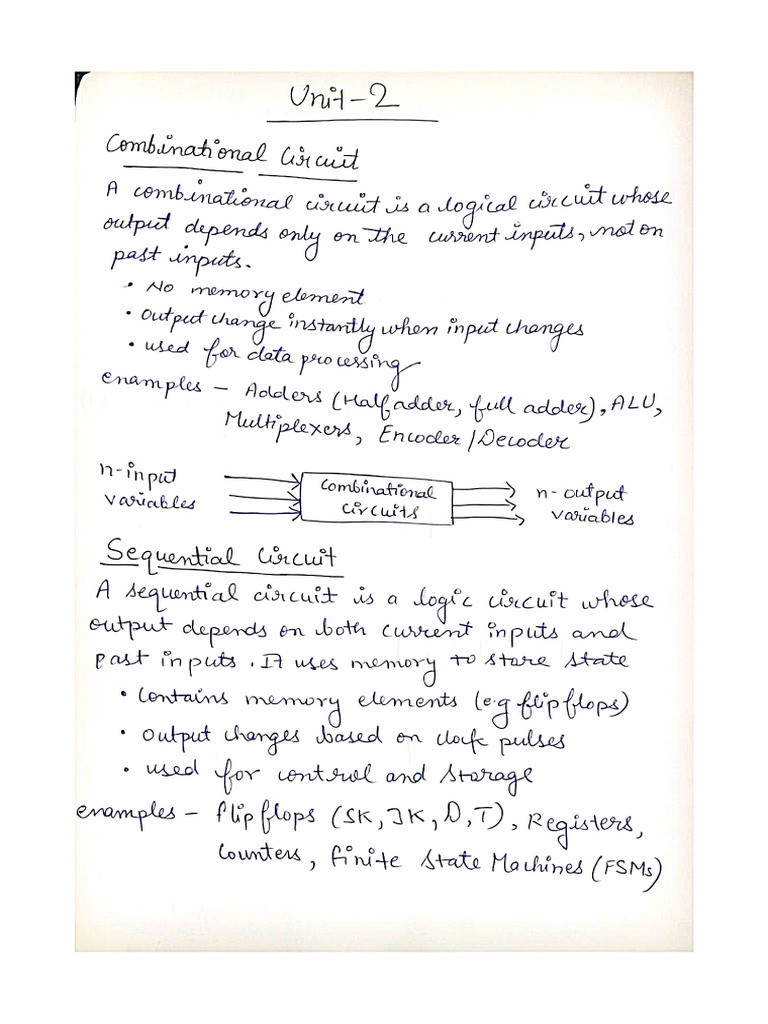 Unit-2
Combinational Circuit
A combinational circuit is a logical circuit whose
output depends only on the current inputs, not on
past inputs.
• No memory element
• output change instantly when input changes
• used for data processing
enamples - Adders (Half adder, full adder), ALU,
Multiplexers, Encoder/Decoder
n-input
variables
Combinational
circuits
n-output
variables
Sequential Circuit
A sequential circuit is a logic circuit whose
output depends on both current inputs and
past inputs. It uses memory to store state
• Contains memory elements (e.g flipflops)
• output changes based on clock pulses
• used for control and storage
enamples - flipflops (SK, JK, D, T), Registers,
Counters, finite state Machines (FSMs)